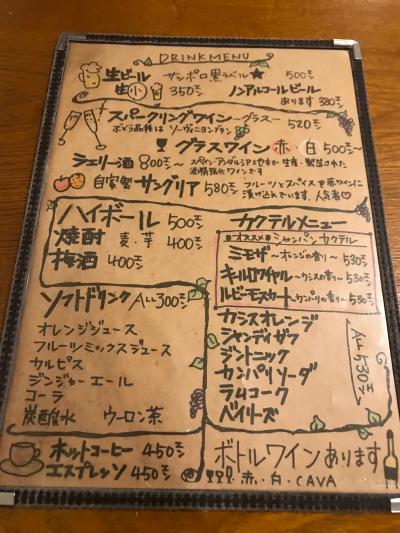 DRINK MENU
生ビール サッポロ黒ラベル★ 500モン
生小 350モン ノンアルコールビール
あります 330モン
スパークリングワイン〜グラス〜 520モン
ぶどう品種は ソーヴィニヨンブラン
グラスワイン 赤・白 500モン〜
シェリー酒 800モン〜 スペイン・アンダルシア地方で生産・製造された
酒精強化ワインです
自家製サングリア 580モン フルーツとスパイスを赤ワインに
漬け込んでいます。人気者♡
ハイボール 500モン
焼酎 麦・芋 400モン
梅酒 400モン
カクテルメニュー
★オススメ★シャンパンカクテル
ミモザ 〜オレンジの香り〜 530モン
キールロワイヤル 〜カシスの香り〜 530モン
ルビーモスカート 〜カンパリの香り〜 530モン
カシスオレンジ
シャンディガフ
ジントニック
カンパリソーダ
ラムコーク
ベイリーズ
ALL 530モン
ソフトドリンク ALL 300モン
オレンジジュース
フルーツミックスジュース
カルピス
ジンジャーエール
コーラ
炭酸水 ウーロン茶
ホットコーヒー 450モン
エスプレッソ 450モン
ボトルワインあります
赤・白・CAVA